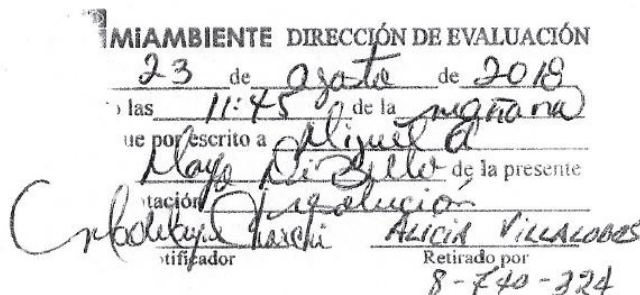 MiAMBIENTE DIRECCIÓN DE EVALUACIÓN
23 de agosto de 2018
las 11:45 de la mañana
ue por escrito a Miguel A
de la presente
tación resolución
ALICIA VILLALOBOS
tificador Retirado por
8-740-324